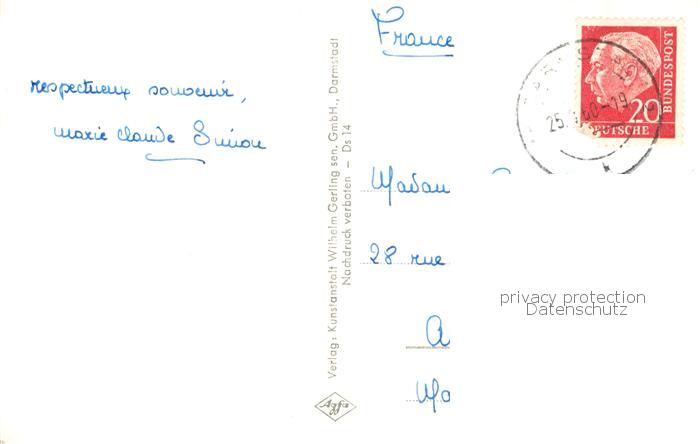 France
respectueux souvenir,
marie claude Simon
Verlag: Kunstanstalt Wilhelm Gerling sen. GmbH., Darmstadt
Nachdruck verboten – Ds 14
Agfa
20
DEUTSCHE
BUNDESPOST
Madam
28 rue
A
Mo
privacy protection
Datenschutz